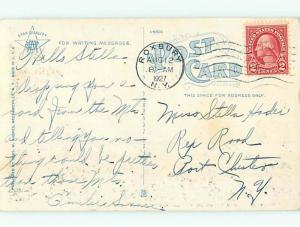 FOR WRITING MESSAGES
POST
CARD
THIS SPACE FOR ADDRESS ONLY
ROXBURY
AUG 12
8-AM
1927
N.Y.
2 CENTS 2
Hello Stella.
Dropping you a
card from the Mts
and telling you no-
thing could be prettier
than these Mts.
Miss Stella
Rye Road
Port Chester
N.Y.